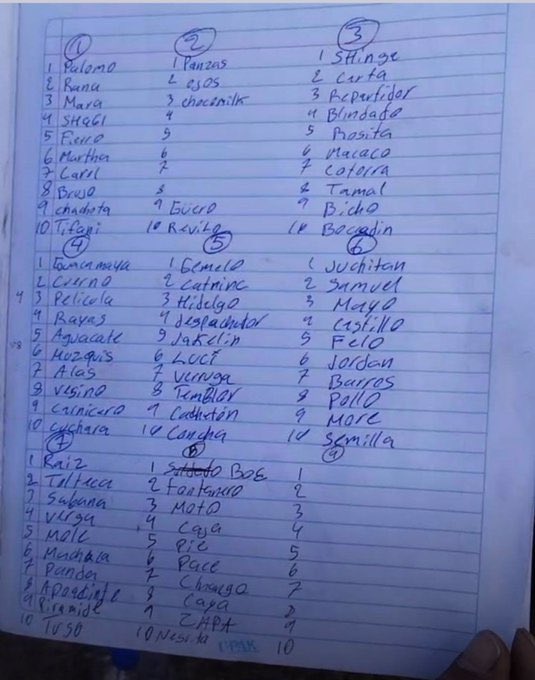 1 2 3
1 Palomo 1 Panzas 1 SHinge
2 Rana 2 ojos 2 Carta
3 Mara 3 chocomilk 3 Repartidor
4 SHAGI 4 4 Blindado
5 Fierro 5 5 Rosita
6 Martha 6 6 Macaco
7 Carol 7 7 Cotorra
8 Brujo 8 8 Tamal
9 chachota 9 Güero 9 Bicho
10 Tifani 10 10 Bocadin
4 5 6
1 Guacamaya 1 Gemelo 1 Juchitan
2 Cuerno 2 Catrina 2 Samuel
3 Pelicola 3 Hidalgo 3 Mayo
4 Rayas 4 despachator 4 Castillo
5 Aguacate 5 Jakelin 5 Felo
6 6 Luci 6 Jordan
7 Alas 7 Verruga 7 Barros
8 Vesino 8 Temblor 8 Pollo
9 Carnicero 9 9 More
10 cuchara 10 Concha 10 Semilla
7 8 9
1 Raiz 1 BOE 1
2 Tolteca 2 Fontanero 2
3 Sabana 3 Moto 3
4 Verga 4 Caja 4
5 Mole 5 Pie 5
6 Muchara 6 Pace 6
7 Panda 7 Chango 7
8 8 Caya 8
9 Piramide 9 ZAPA 9
10 Tuso 10 10